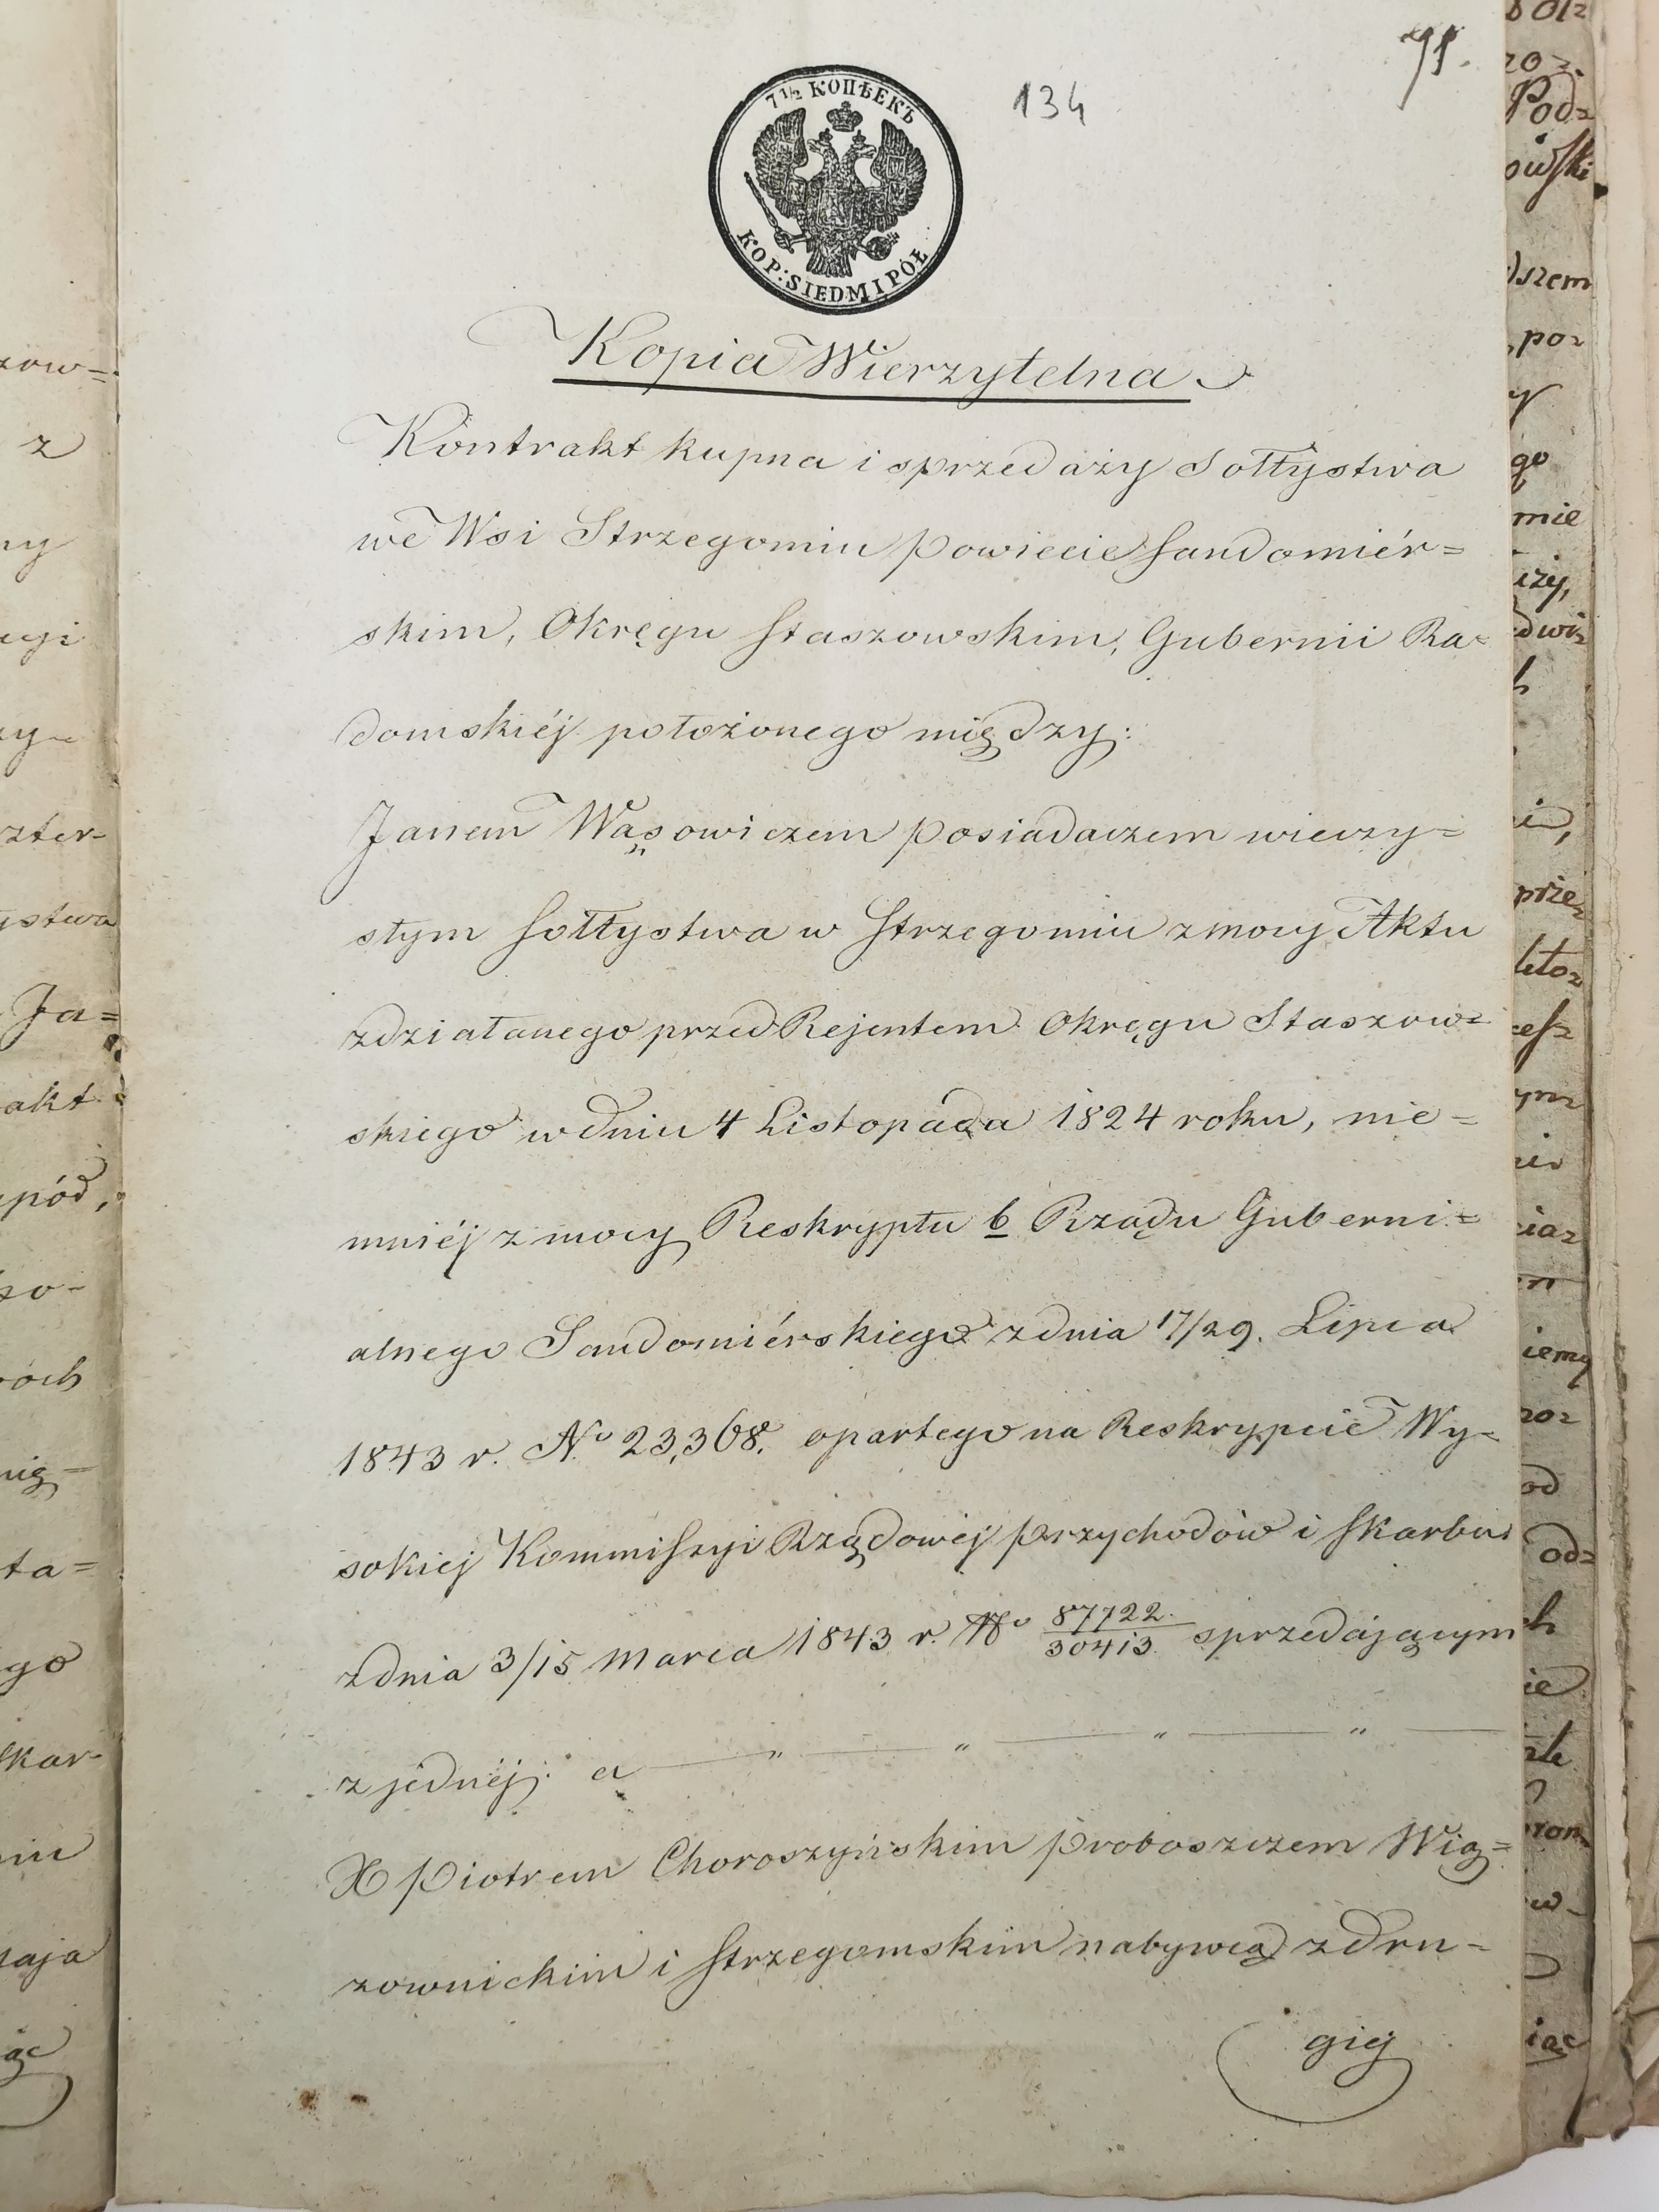 134
71.
7½ КОПѢЕКЪ
KOP: SIEDM I PÓŁ
Kopia Wierzytelna
Kontrakt kupna i sprzedaży Sołtystwa
we Wsi Strzegomiu Powiecie Sandomiér=
skim, Okręgu Staszowskim, Gubernii Ra=
domskiéj położonego między:
Janem Wąsowiczem Posiadaczem wieczy=
stym Sołtystwa w Strzegomiu z mocy Aktu
zdziałanego przed Rejentem Okręgu Staszow=
skiego w dniu 4 Listopada 1824 roku, nie=
mniéj z mocy Reskryptu b Rządu Guberni=
alnego Sandomiérskiego z dnia 17/29. Lipca
1843 r. No 23,368. opartego na Reskrypcie Wy=
sokiej Kommissyi Rządowéj Przychodów i Skarbu
z dnia 3/15 Marca 1843 r. No 87722/30413 sprzedającym
z jednéj: a — " — " — " — " —
X Piotrem Choroszyńskim Proboszczem Wią=
zownickim i Strzegomskim nabywcą z dru=
giéj